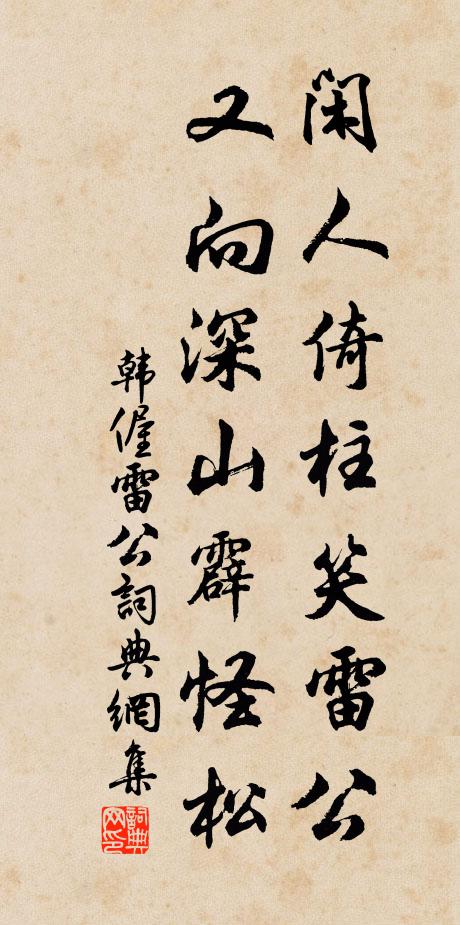 閑人倚柱笑雷公
又向深山霹怪松
韓偓雷公詞典網集
詞典
网印